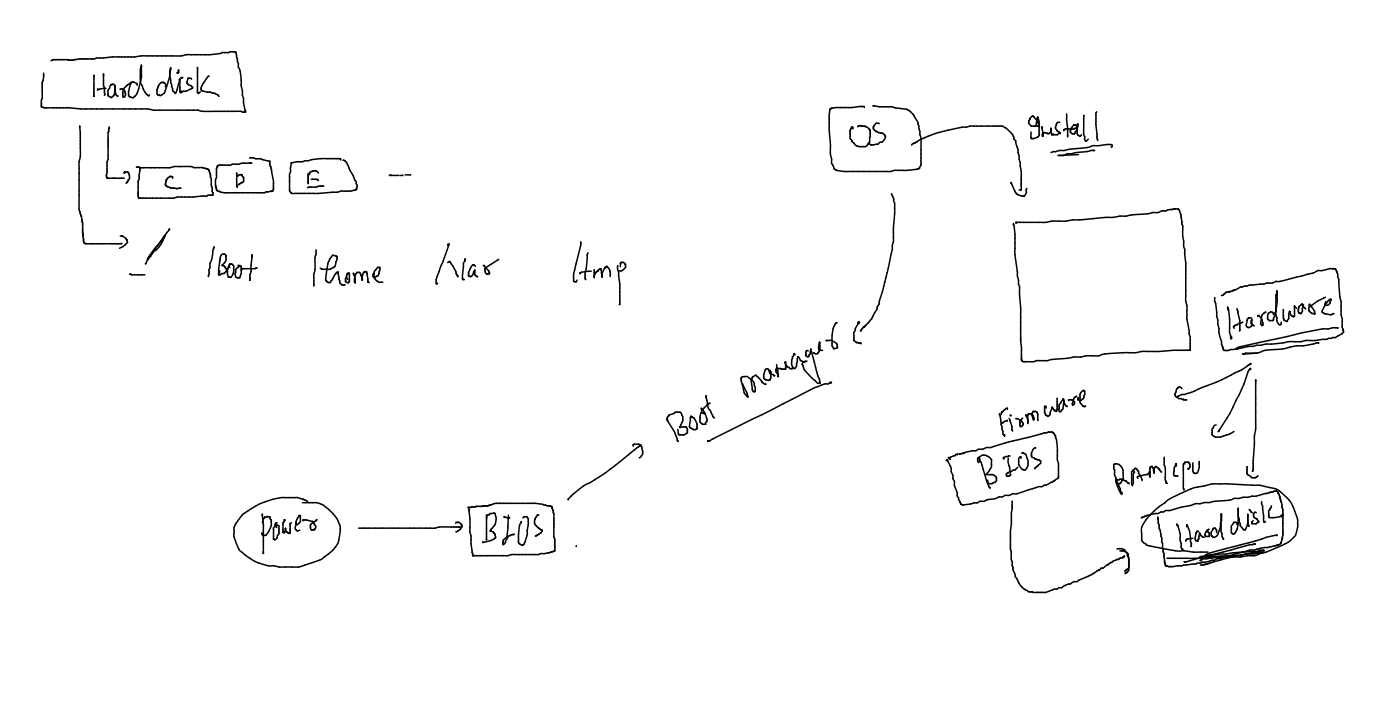 Hard disk
C D E -
/ /Boot /home /var /tmp
OS
Install
Hardware
Boot manager
Firmware
BIOS
RAM/CPU
Hard disk
Power
BIOS